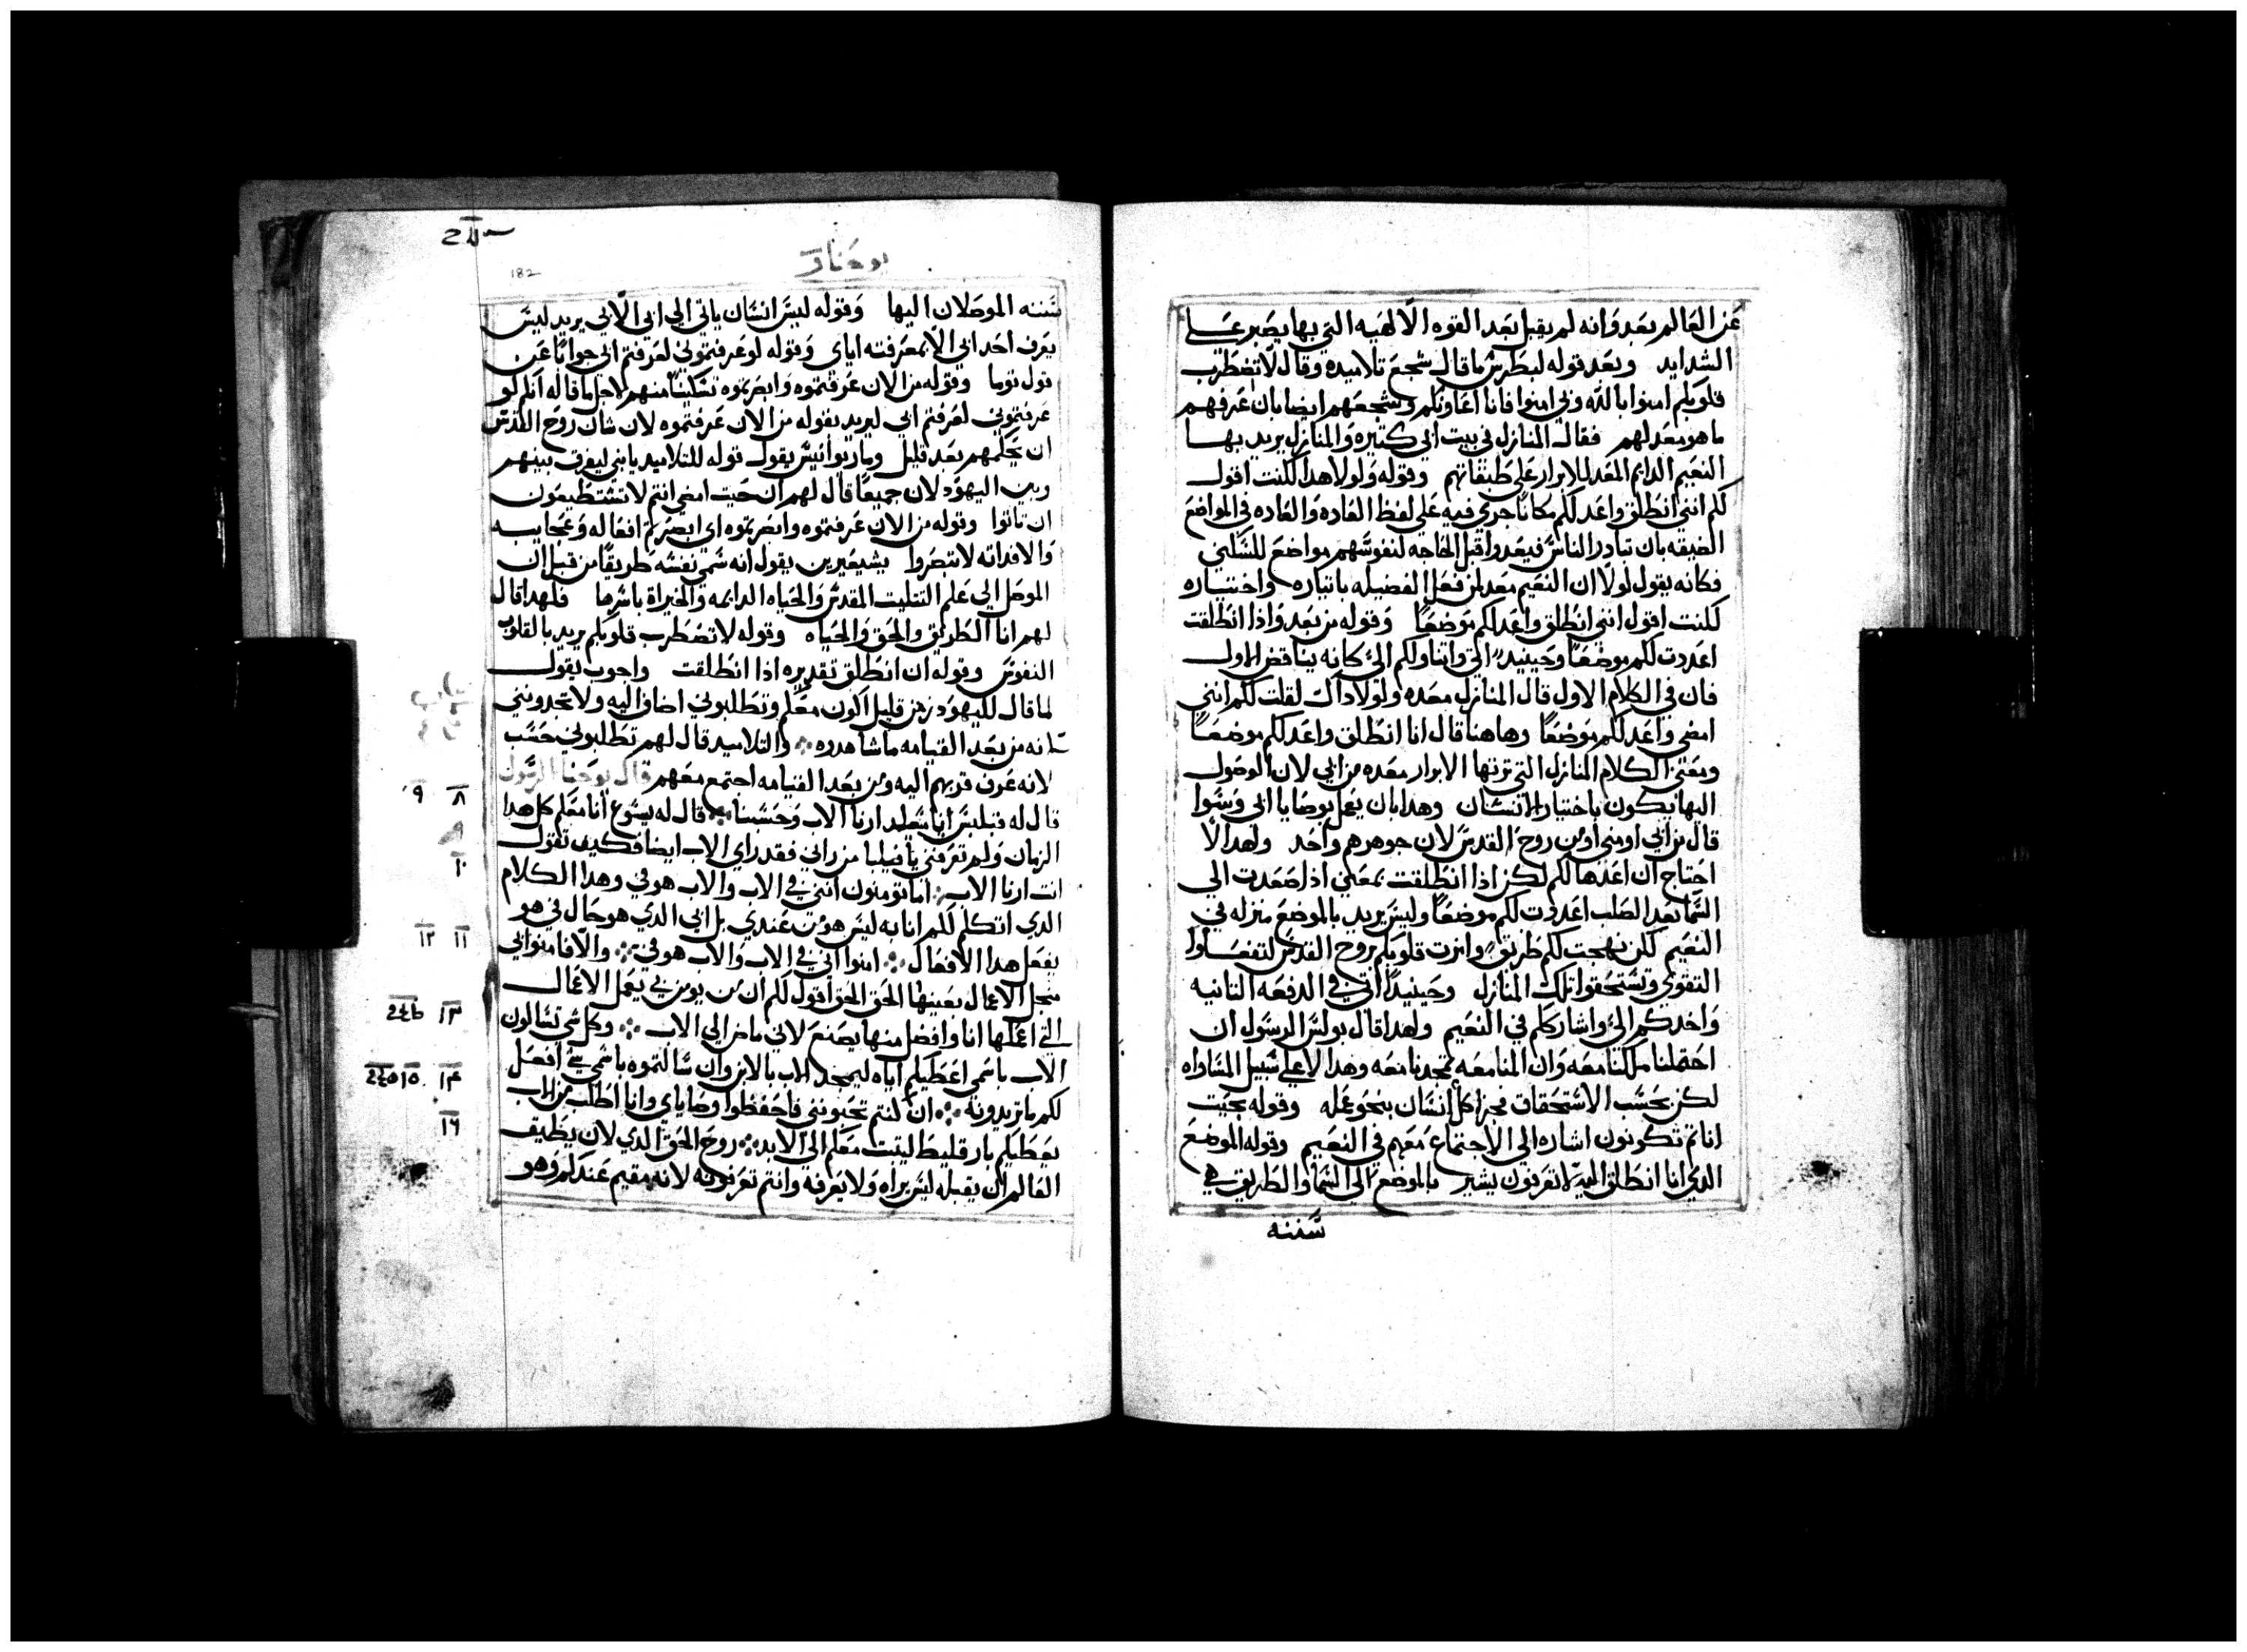 عن العالم بعد وانه لم يقبل بعد القوه الالهيه التي بها يصبر على
الشدايد وبعد قوله لبطرس ما قال شجع تلاميده وقال لا تضطرب
قلوبكم امنوا بالله وبي امنوا فانا اعاونكم وشجعهم ايضا بان عرفهم
ما هو معد لهم فقال المنازل في بيت ابي كتيره والمنازل يريد بها
النعيم الدايم المعد للابرار على طبقاتهم وقوله ولولا هدا لكنت اقول
لكم انني انطلق واعد لكم مكانا جري فيه على لفظ العاده والعاده في المواضع
الضيقه بان تبادر الناس فيعدوا قبل الحاجه لنفوسهم مواضع للسكني
فكانه يقول لولا ان النعيم معد لمن فعل الفضيله باتياره واختياره
لكنت اقول انني انطلق واعد لكم موضعا وقوله من بعد وادا انطلقت
اعددت لكم موضعا وحينيد اتي واتناولكم الي كانه يناقض الاول
فان في الكلام الاول قال المنازل معده ولولا داك لقلت لكم انني
امضي واعد لكم موضعا وهاهنا قال انا انطلق واعد لكم موضعا
ومعنى الكلام المنازل التي ترتها الابرار معده من ابي لان الوصول
اليها يكون باختيار الانسان وهدا بان يعمل بوصايا ابي وسوا
قال من ابي او مني او من روح القدس لان جوهرهم واحد ولهدا لا
احتاج ان اعدها لكم لكن ادا انطلقت بمعني اذا صعدت الي
السما بعد الصلب اعددت لكم موضعا وليس يريد بالموضع منزله في
النعيم لكن نهجت لكم طريق وانرت قلوبكم بروح القدس لتفعلوا
التقوي وتستحقوا تلك المنازل وحينيدا اتي في الدفعه التانيه
واخدكم الي واشارككم في النعيم ولهدا قال بولس الرسول ان
احتملنا ملكنا معه وان المنا معه تمجدنا معه وهدا لا علي سبيل المساواه
لكن بحسب الاستحقاقات فجزا كل انسان بنحو عمله وقوله بحيت
انا تم تكونون اشاره الي الاجتماع معهم في النعيم وقوله الموضع
الدي انا انطلق اليه لا تعرفون يشير بالموضع الي السما والطريق هي
سننه
يوحنا
182
سننه الموصلان اليها وقوله ليس انسان ياتي الي ابي الا بي يريد ليس
يعرف احد ابي الا بمعرفته اياي وقوله لو عرفتموني لعرفتم ابي جوابا عن
قول توما وقوله من الان عرفتموه وابصرتموه تسكينا منهم لاجل ما قاله انكم لو
عرفتموني لعرفتم ابي ليريد بقوله من الان عرفتموه لان شان روح القدس
ان يحلمهم بعد قليل وماريوانيس يقول قوله للتلاميد يا بني ليفرق بينهم
وبين اليهود لان جميعا قال لهم ان حيت امضي انتم لا تستطيعون
ان تاتوا وقوله من الان عرفتموه وابصرتموه اي ابصرتم افعاله وعجايبه
والا فداته لا تبصروا يشيعيرين يقول انه سمي نفسه طريقا من قبل ان
الموصل الي علم التتليت المقدس والحياه الدايمه والخيراة باسرها فلهدا قال
لهم انا الطريق والحق والحياه وقوله لا تضطرب قلوبكم يريد بالقلوب
النفوس وقوله ان انطلق تقديره ادا انطلقت واجوب يقول
لما قال لليهود زمن قليل اكون معكم وتطلبوني اضاف اليه ولا تجدونني
لانه من بعد القيامه ما شاهدوه والتلاميد قال لهم تطلبوني حسب
لانه عرف قربهم اليه ومن بعد القيامه اجتمع معهم قال يوحنا الرسول
قال له فيلبس يا سيد ارنا الاب وحسبنا قال له يسوع انا معكم كل هدا
الزمان ولم تعرفني يا فيلبا من راني فقد راي الاب ايضا فكيف تقول
انت ارنا الاب اما تومنون انني في الاب والاب هو في وهدا الكلام
الدي اتكلم لكم انا به ليس هو من عندي بل ابي الدي هو حال في هو
يفعل هدا الافعال امنوا اني في الاب والاب هو في والا فامنوا بي
من اجل الاعمال بعينها الحق الحق اقول لكم ان من يومن بي يعمل الاعمال
التي اعملها انا وافضل منها يصنع لاني ماض الي الاب وكل شي تسالون
الاب باسمي اعطيكم اياه ليمجد الاب بالابن وان سالتموه باسمي شي افعل
لكم ما تريدونه ان كنتم تحبونني فاحفظوا وصاياي وانا اطلب من الاب
يعطيكم بارقليط ليتبت معكم الي الابد روح الحق الدي لان يطيق
العالم ان يقبله ليس يراه ولا يعرفه وانتم تعرفونه لانه مقيم عندكم وهو
٨ ٩
١٠
١١ ١٢
١٣
١٤ ١٥
١٦